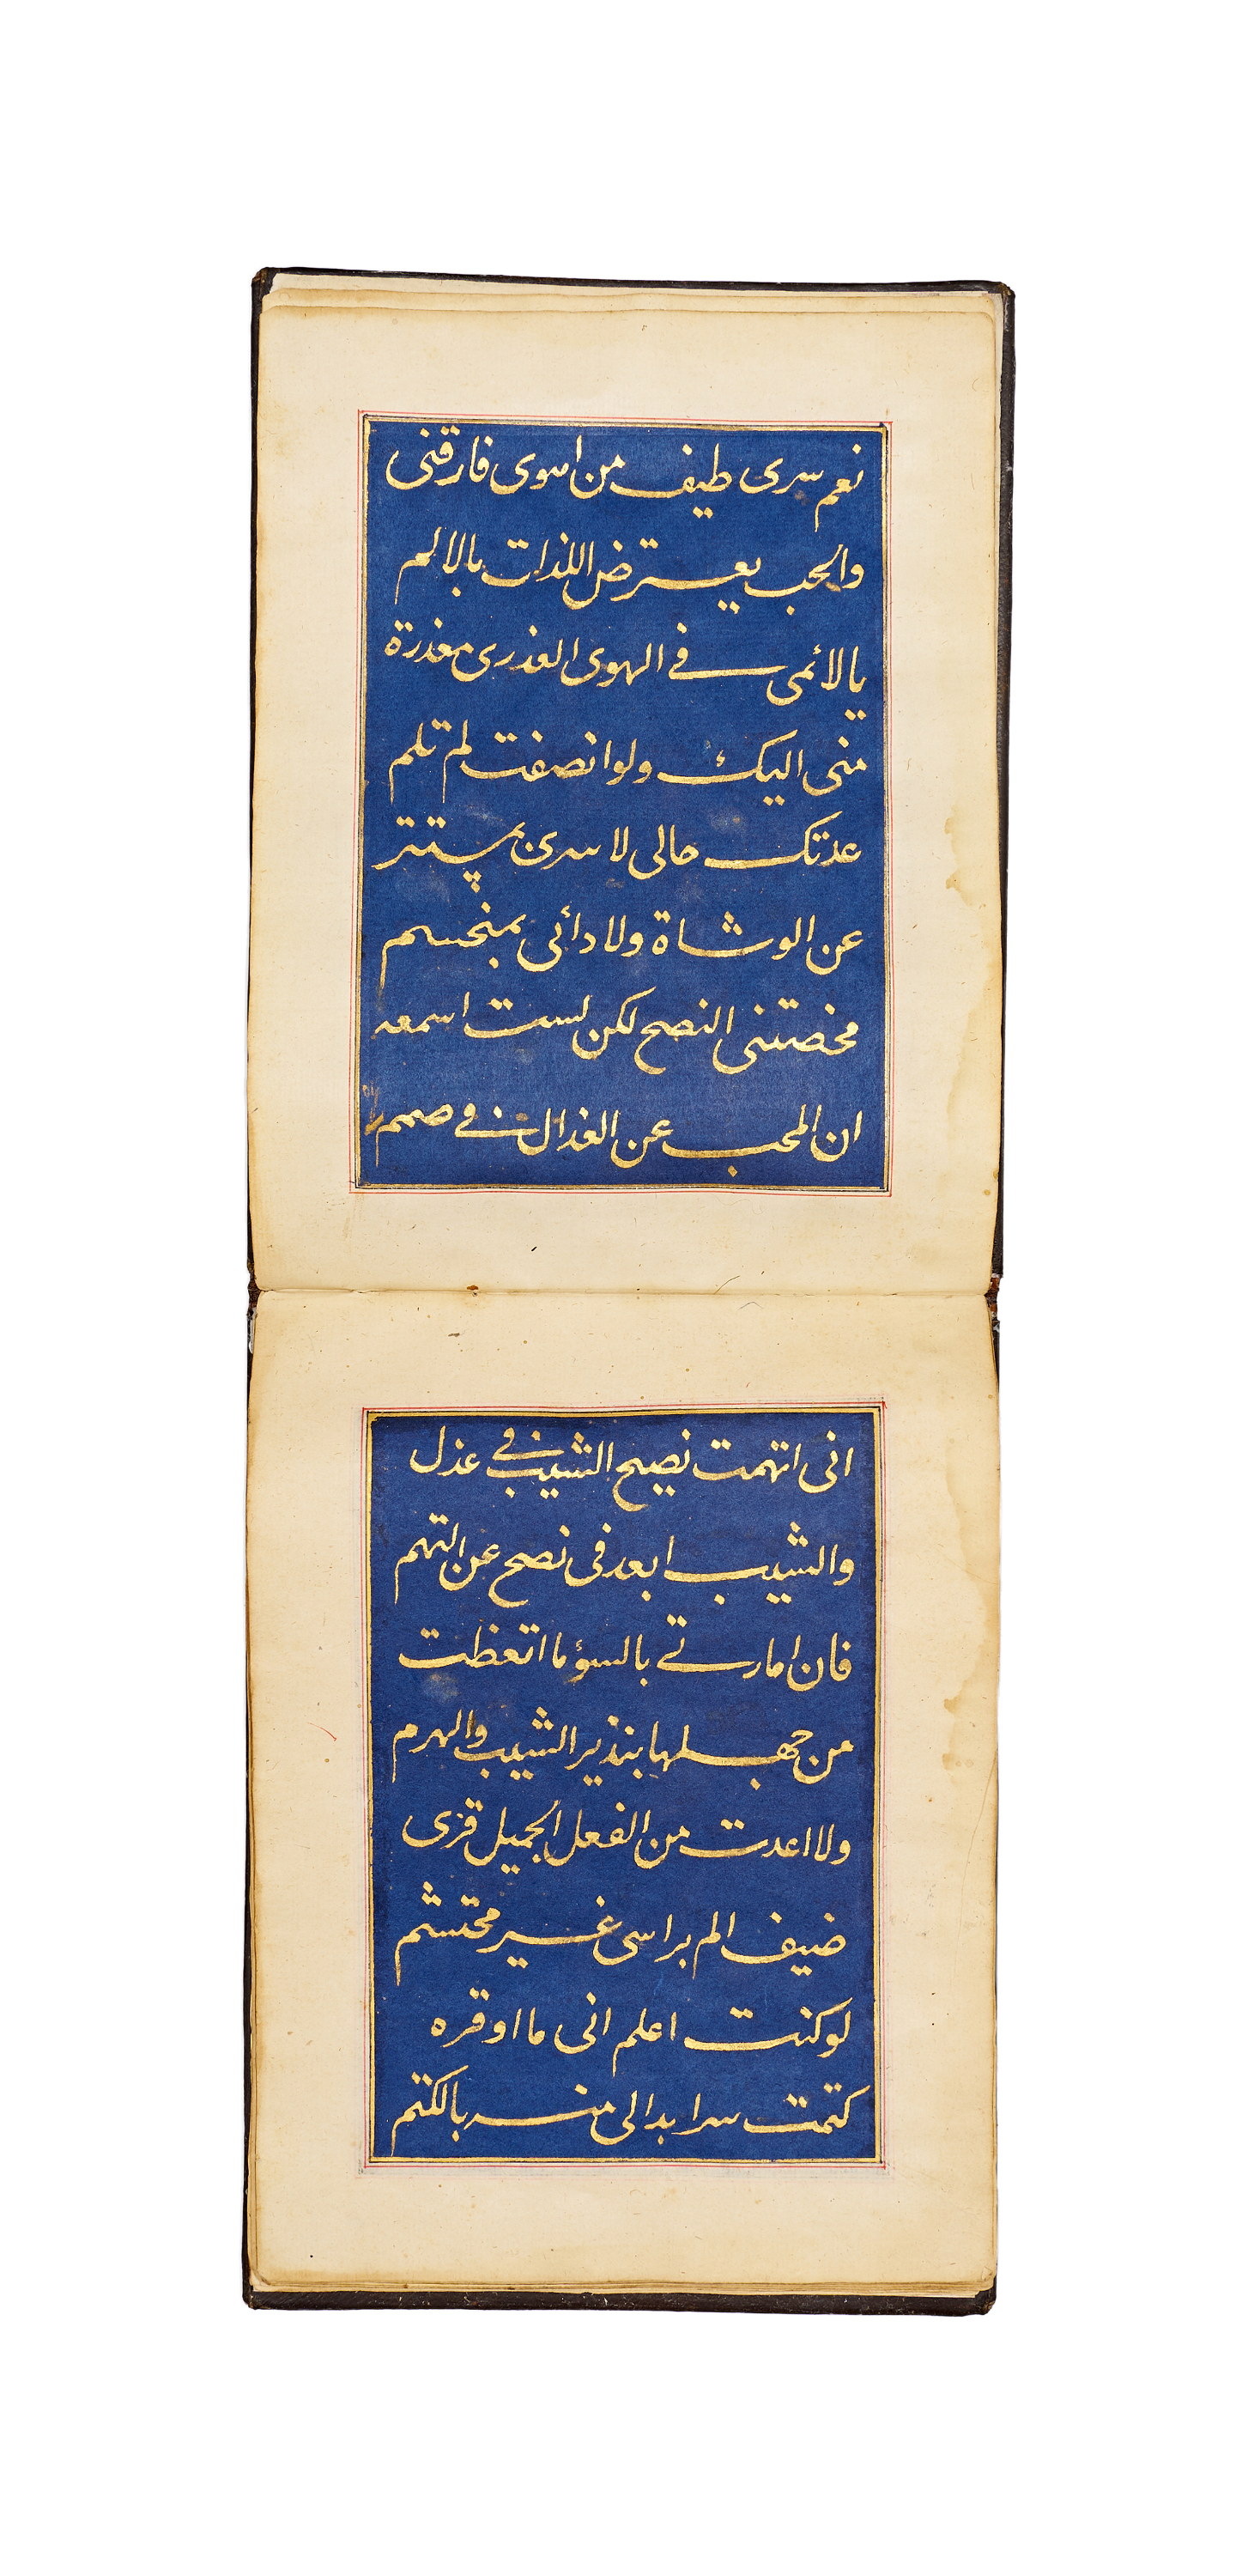 نعم سرى طيف من اهوى فارقنى
والحب يعترض اللذات بالالم
يا لائمى فى الهوى العذرى معذرة
منى اليك ولو انصفت لم تلم
عدتك حالى لا سرى بمستتر
عن الوشاة ولا دائى بمنحسم
محضتنى النصح لكن لست اسمعه
ان المحب عن العذال فى صمم
انى اتهمت نصيح الشيب فى عذل
والشيب ابعد فى نصح عن التهم
فان امارتى بالسؤ ما اتعظت
من جهلها بنذير الشيب والهرم
ولا اعدت من الفعل الجميل قرى
ضيف الم براسى غير محتشم
لو كنت اعلم انى ما اوقره
كتمت سرا بدالى منه بالكتم